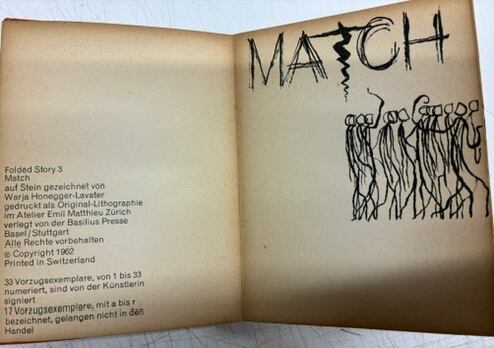 Folded Story 3
Match
auf Stein gezeichnet von
Warja Honegger-Lavater
gedruckt als Original-Lithographie
im Atelier Emil Matthieu Zürich
verlegt von der Basilius Presse
Basel/Stuttgart
Alle Rechte vorbehalten
© Copyright 1962
Printed in Switzerland
33 Vorzugsexemplare, von 1 bis 33
numeriert, sind von der Künstlerin
signiert
17 Vorzugsexemplare, mit a bis r
bezeichnet, gelangen nicht in den
Handel
MATCH